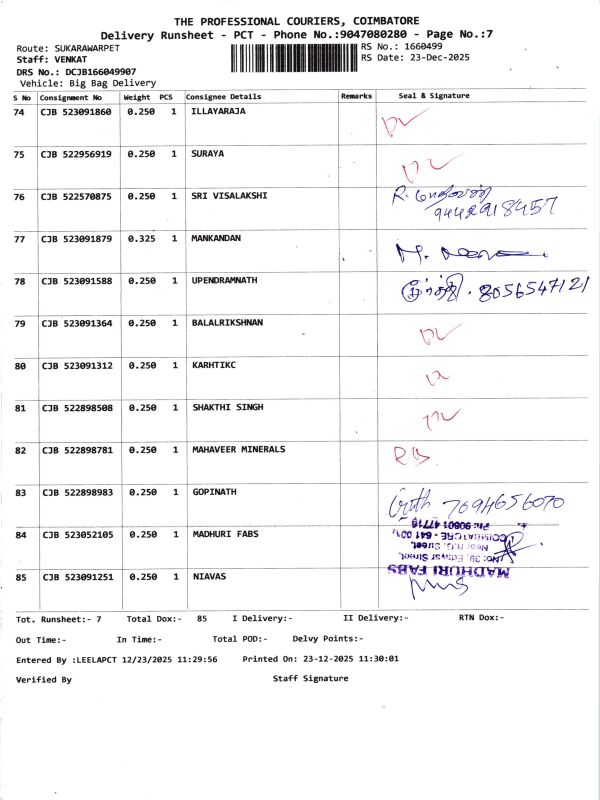 THE PROFESSIONAL COURIERS, COIMBATORE
Delivery Runsheet - PCT - Phone No.:9047080280 - Page No.:7
Route: SUKARAWARPET
RS No.: 1660499
Staff: VENKAT
RS Date: 23-Dec-2025
DRS No.: DCJB166049907
Vehicle: Big Bag Delivery
S No Consignment No Weight PCS Consignee Details Remarks Seal & Signature
74 CJB 523091860 0.250 1 ILLAYARAJA
75 CJB 522956919 0.250 1 SURAYA
76 CJB 522570875 0.250 1 SRI VISALAKSHI R.
9442918457
77 CJB 523091879 0.325 1 MANKANDAN M.
78 CJB 523091588 0.250 1 UPENDRAMNATH 8056547121
79 CJB 523091364 0.250 1 BALALRIKSHNAN
80 CJB 523091312 0.250 1 KARHTIKC
81 CJB 522898508 0.250 1 SHAKTHI SINGH
82 CJB 522898781 0.250 1 MAHAVEER MINERALS
83 CJB 522898983 0.250 1 GOPINATH 7694656070
84 CJB 523052105 0.250 1 MADHURI FABS
Ph: 90801 47716
COIMBATORE - 641 001.
Near R.G. Street,
MADHURI FABS
85 CJB 523091251 0.250 1 NIAVAS
Tot. Runsheet:- 7 Total Dox:- 85 I Delivery:- II Delivery:- RTN Dox:-
Out Time:- In Time:- Total POD:- Delvy Points:-
Entered By :LEELAPCT 12/23/2025 11:29:56 Printed On: 23-12-2025 11:30:01
Verified By Staff Signature